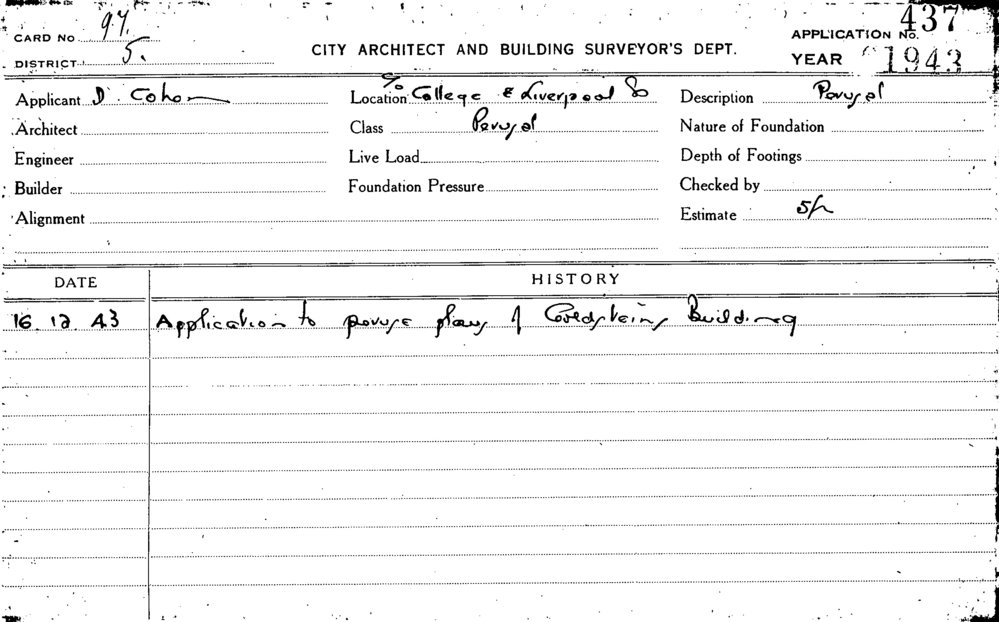 CARD No 97. APPLICATION No. 437
DISTRICT 5. CITY ARCHITECT AND BUILDING SURVEYOR'S DEPT. YEAR 1943
Applicant D. Cohen Location c/o College & Liverpool So Description Perusal
Architect Class Perusal Nature of Foundation
Engineer Live Load Depth of Footings
Builder Foundation Pressure Checked by
Alignment Estimate 5/-
DATE HISTORY
16.12.43 Application to peruse plans of Building